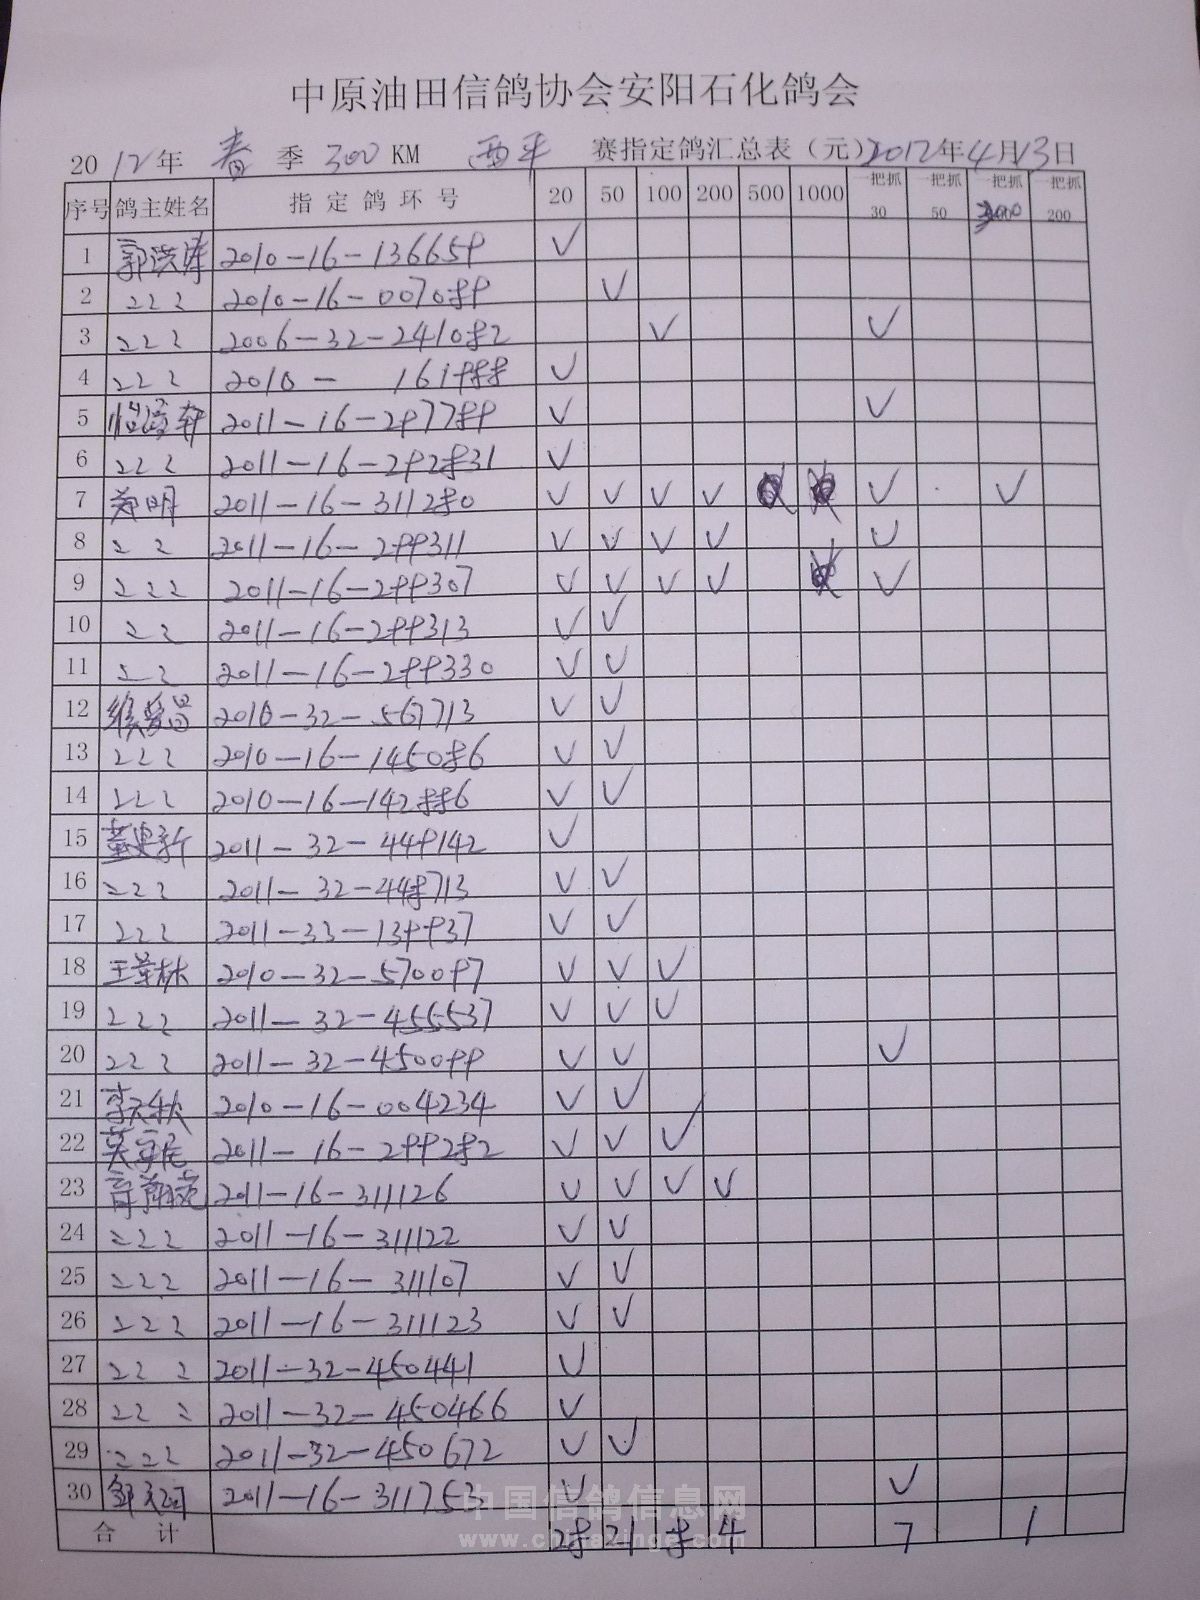 中原油田信鸽协会安阳石化鸽会
2012年 春 季 300 KM 西平 赛指定鸽汇总表（元）2012年4月13日
序号 鸽主姓名 指定鸽环号 20 50 100 200 500 1000 一把抓30 一把抓50 一把抓 一把抓200
1 郭洪涛 2010-16-136659 ✓
2 〃 2010-16-007089 ✓
3 〃 2006-32-241082 ✓ ✓
4 〃 2010- 161988 ✓
5 2011-16-297789 ✓ ✓
6 〃 2011-16-292831 ✓
7 郑明 2011-16-311280 ✓ ✓ ✓ ✓ ✓ ✓
8 〃 2011-16-299311 ✓ ✓ ✓ ✓ ✓
9 〃 2011-16-299307 ✓ ✓ ✓ ✓ ✓
10 〃 2011-16-299313 ✓ ✓
11 〃 2011-16-299330 ✓ ✓
12 2010-32-567713 ✓ ✓
13 〃 2010-16-145086 ✓ ✓
14 〃 2010-16-142886 ✓ ✓
15 董更新 2011-32-449142 ✓
16 〃 2011-32-448713 ✓ ✓
17 〃 2011-33-139937 ✓ ✓
18 2010-32-570097 ✓ ✓ ✓
19 〃 2011-32-455537 ✓ ✓ ✓
20 〃 2011-32-450099 ✓ ✓ ✓
21 李天秋 2010-16-004234 ✓ ✓
22 2011-16-299282 ✓ ✓ ✓
23 2011-16-311126 ✓ ✓ ✓ ✓
24 〃 2011-16-311122 ✓ ✓
25 〃 2011-16-311107 ✓ ✓
26 〃 2011-16-311123 ✓ ✓
27 〃 2011-32-450441 ✓
28 〃 2011-32-450466 ✓
29 〃 2011-32-450672 ✓ ✓
30 2011-16-311753 ✓ ✓
合计 28 21 8 4 7 1
中国信鸽信息网
www.chinaxinge.com